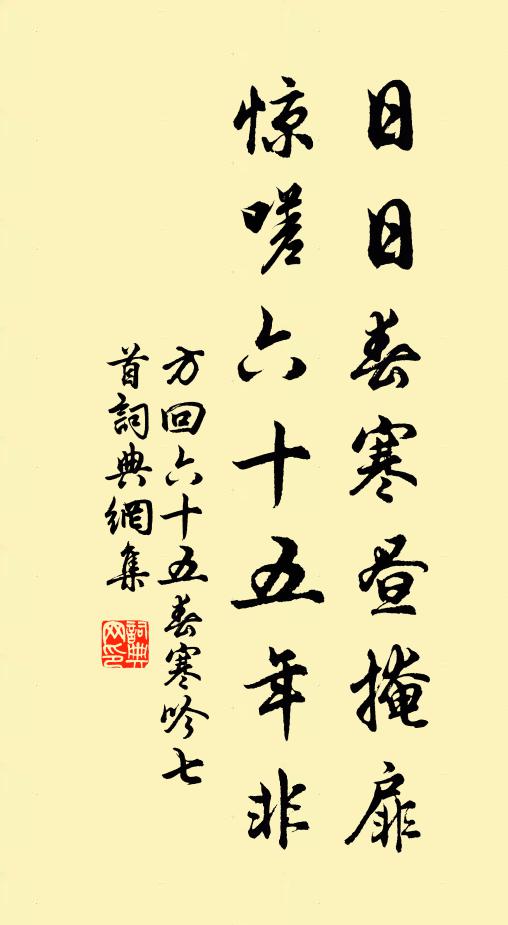 日日春寒昼掩扉
惊嗟六十五年非
方回六十五春寒吟七
首詞典網集
詞典网印